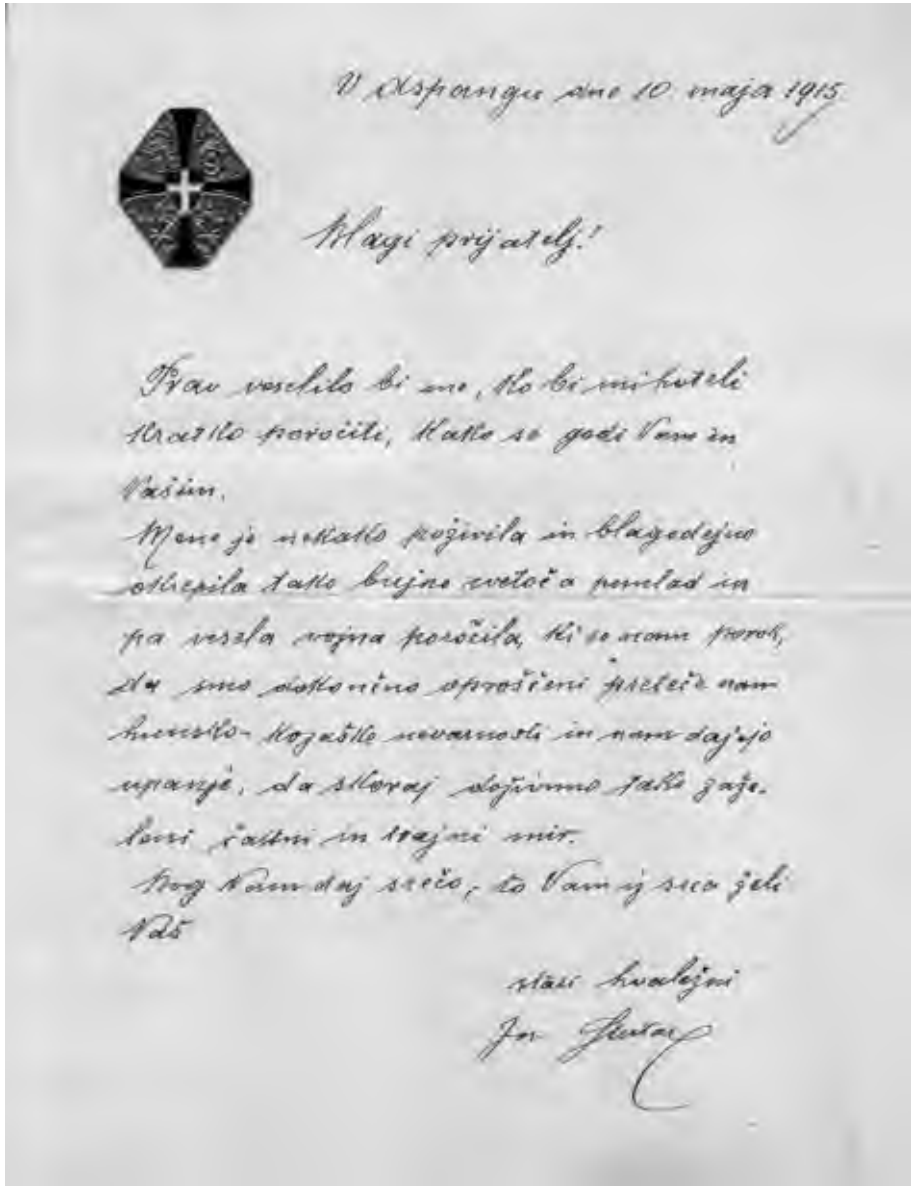 V Aspangu dne 10. maja 1915.
Blagi prijatelj!
Prav veselilo bi me, ko bi mi hoteli
kratko poročiti, kako se godi Vam in
Vašim.
Mene je nekako poživila in blagodejno
okrepila tako bujno cvetoča pomlad in
pa vesela vojna poročila, ki so nam porok,
da smo dokončno oproščeni preteče nam
hunsko-kozaške nevarnosti in nam dajejo
upanje, da skoraj doživimo tako zaže-
leni častni in trajni mir.
Bog Vam daj srečo, - to Vam iz srca želi
Vaš
stari hvaležni